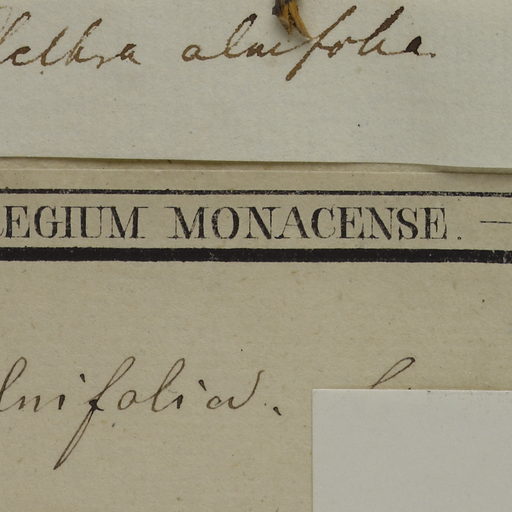 lethra alnifolia.
EGIUM MONACENSE.
lnifolia.